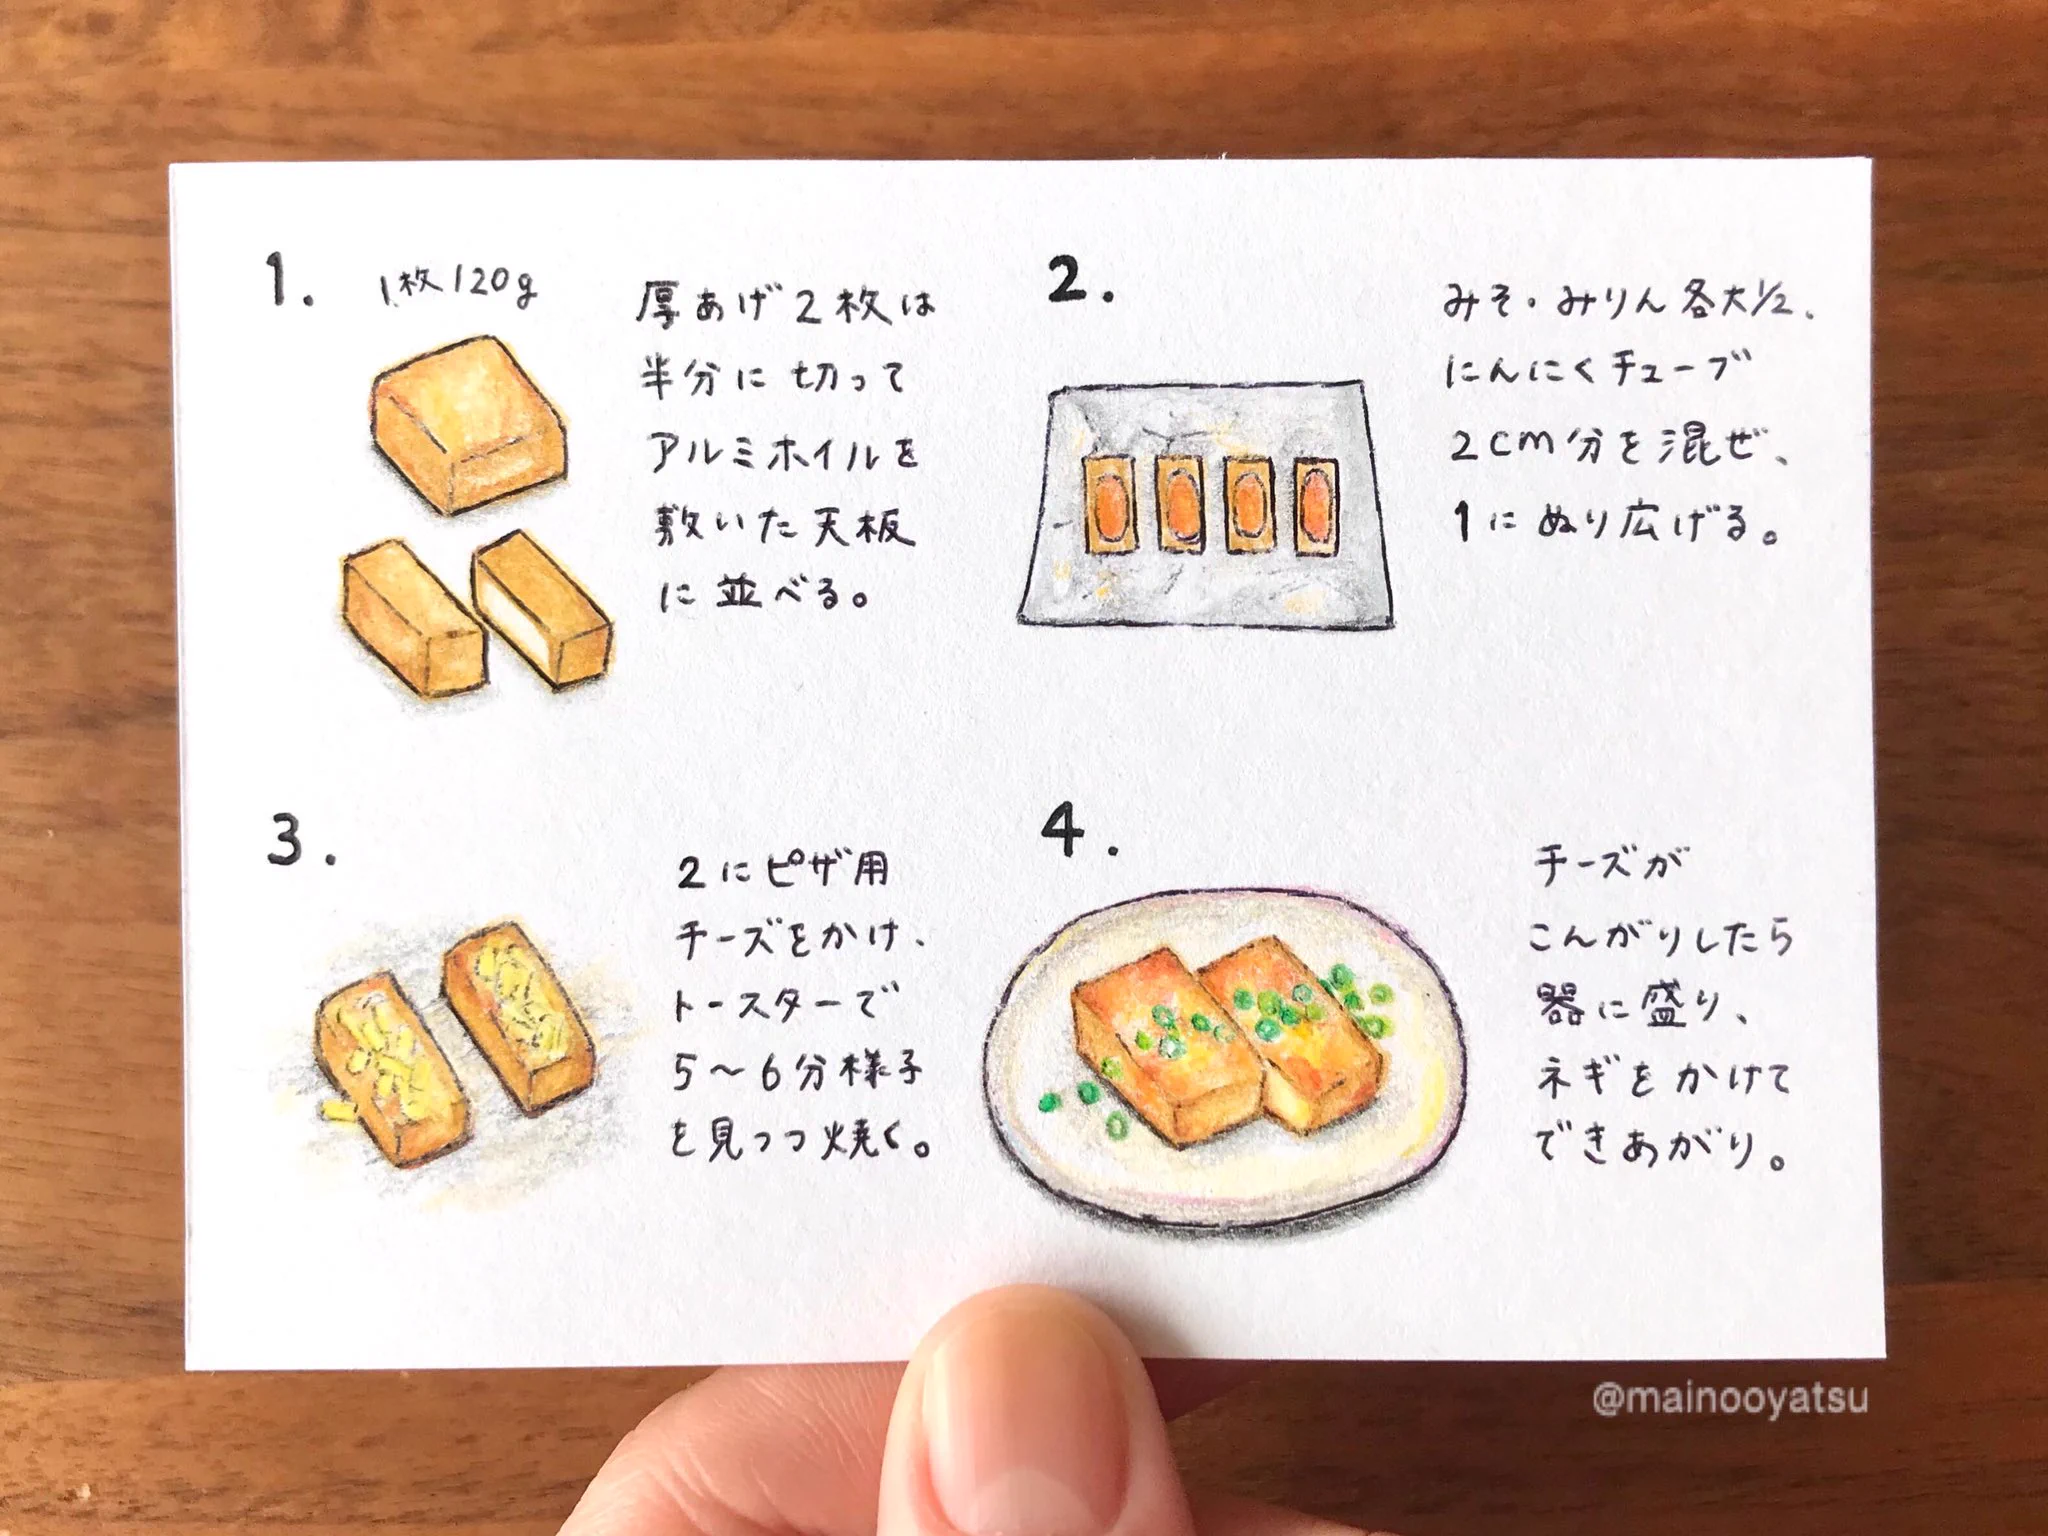 1.
1枚120g
厚あげ2枚は
半分に切って
アルミホイルを
敷いた天板
に並べる。
2.
みそ・みりん各大1/2、
にんにくチューブ
2cm分を混ぜ、
1にぬり広げる。
3.
2にピザ用
チーズをかけ、
トースターで
5〜6分様子
を見つつ焼く。
4.
チーズが
こんがりしたら
器に盛り、
ネギをかけて
できあがり。
@mainooyatsu